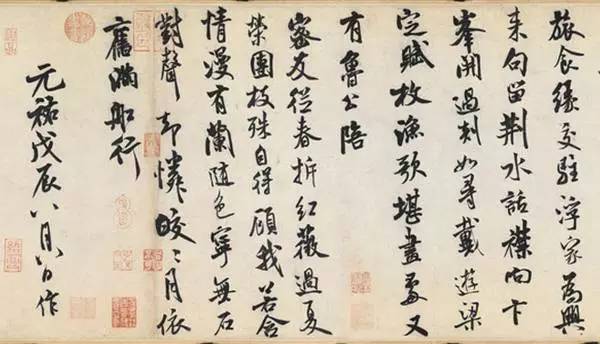 旅食緣交駐浮家爲興
來句留荆水話襟向卞
峯開過剡如尋戴遊梁
定賦枚漁歌堪畫處又
有魯公陪
密友從春拆紅薇過夏
榮團枝殊自得顧我若含
情漫有蘭隨色寧無石
對聲却憐皎々月依
舊滿船行
元祐戊辰八月八日作